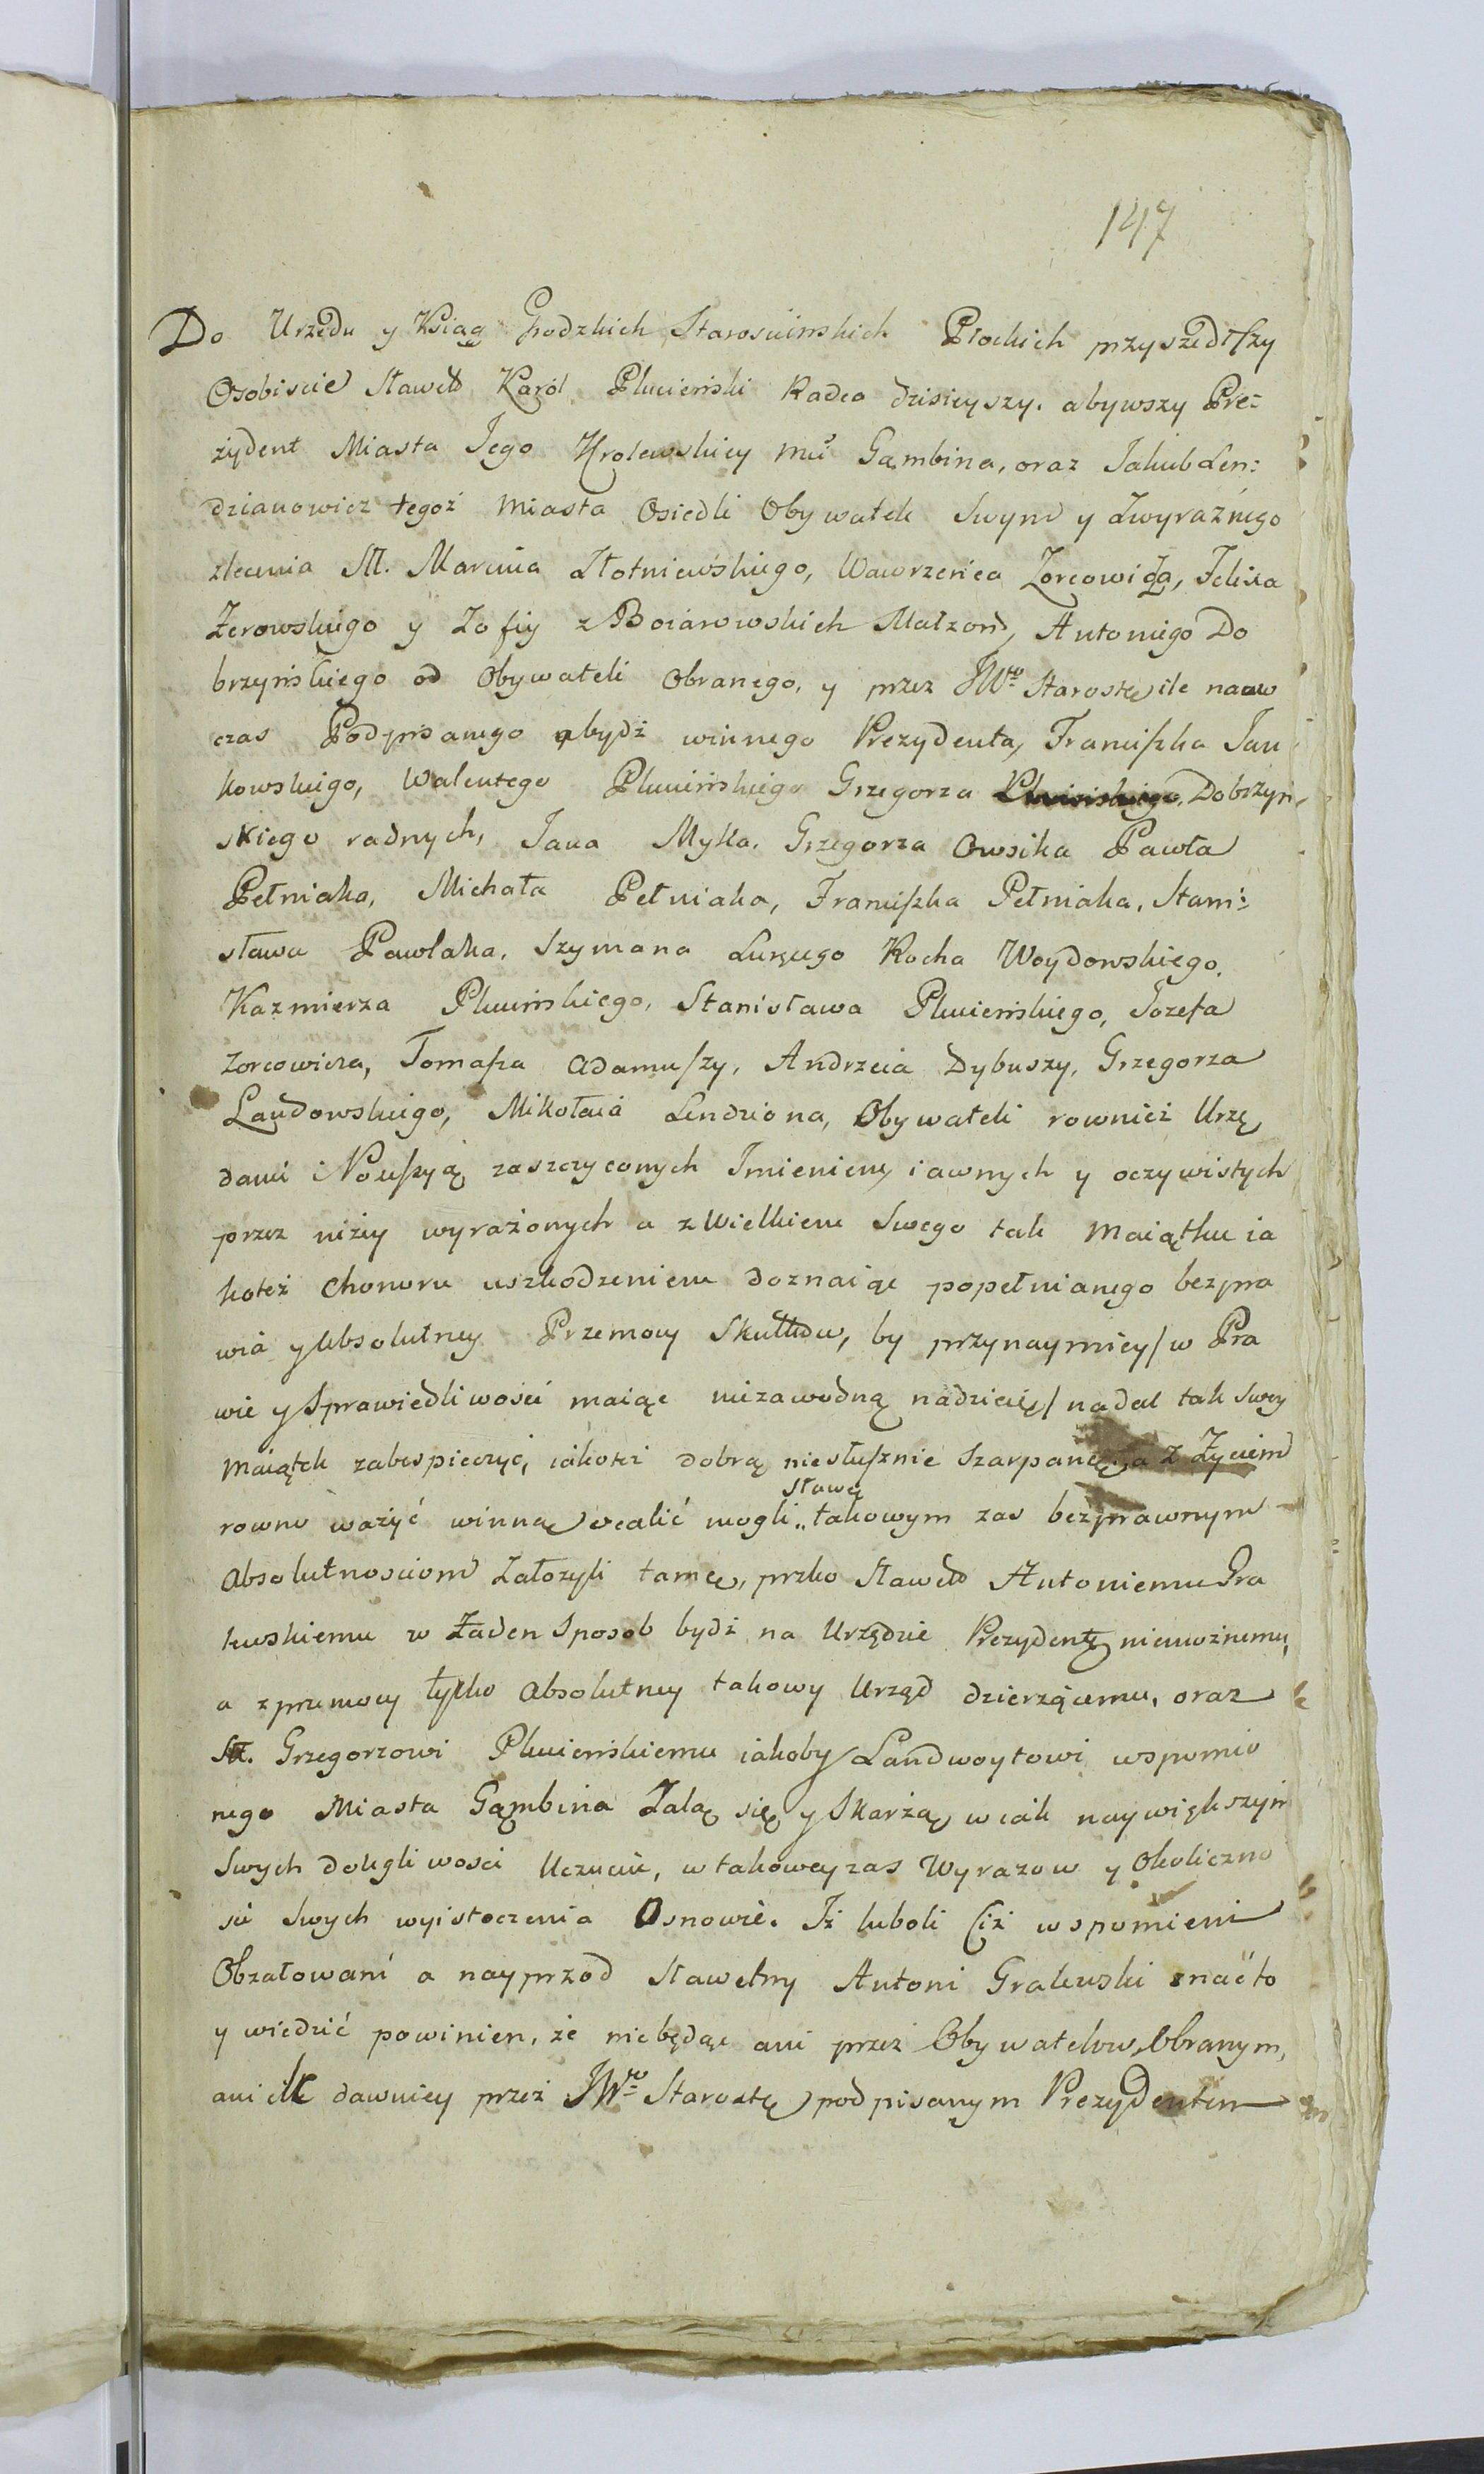 147
Do Urzędu y Ksiąg Grodzkich Starościńskich Płockich przyszedłszy
Osobiscie Sławetd Karól Plucieński Radca dzisieyszy. a bywszy Pre=
zydent Miasta Jego Krolewskiey Mci Gąmbina, oraz Jakub Len=
dzianowicz tegoż Miasta Osiedli Obywatele Swym y Zwyraźnego
zlecenia Sł. Marcina Złotniewskiego, Wawrzeńca Zorcowicza, Felixa
Żerowskiego y Zofiy z Boiarowskich Małżond, Antoniego Do
brzyńskiego od Obywateli Obranego, y przez JWgo Starostę ile naow
czas Podpisanego a bydź winnego Prezydenta, Franciszka Jan
kowskiego, Walentego Plucińskiego Grzegorza Dobrzyn
skiego radnych, Jana Myka, Grzegorza Owsika Pawła
Pełniaka, Michała Pełniaka, Franciszka Pełniaka, Stani=
sława Pawlaka, Szymana Kocha Woydowskiego,
Kazmierza Plucińskiego, Stanisława Plucienskiego, Jozefa
Zorcowicza, Tomasza Adamuszy, Andrzeia Dybuszy, Grzegorza
Landowskiego, Mikołaia Lendziona, Obywateli rownież Urzę
dami i Possessyą zaszczyconych Imieniem iawnych y oczywistych
przez niżey wyrażonych a z Wielkiem Swego tak Maiątku ia
koteż Chonoru uszkodzeniem doznaiąc popełnianego bezpra
wia y Absolutney Przemocy Skutkow, by przynaymniey/ w Pra
wie y Sprawiedliwości maiąc niezawodną nadzieię/ nadal tak Swoy
Maiątek zabespieczyć, iakoteż dobrą niesłusznie Szarpaną, a z Życiem
Sławę
rowno ważyć winną ocalić mogli,, takowym zas bezprawnym
Absolutnosciom Założyli tamę, przko Sławetd Antoniemu Gra
kuskiemu w Żaden Sposob bydź na Urzędzie Prezydentę niemożnemu,
a z przemocy tylko Absolutney takowy Urząd dzierżącemu, oraz
Sł. Grzegorzowi Plucienskiemu iakoby Landwoytowi wspomnio
nego Miasta Gąmbina Żalą się y Skarżą w iak naywiększym
Swych dolegliwości Uczuciu, w takowey zas Wyrazow y Okoliczno
sci Swych wyistoczenia Osnowie. Iż luboli Ciż wspomieni
Obżałowani a nayprzod Sławetny Antoni Grakuski znać to
y wiedzieć powinien, że niebędąc ani przez Obywatelow Obranym,
ani ile dawniey przez JWgo Starostę podpisanym Prezydentem